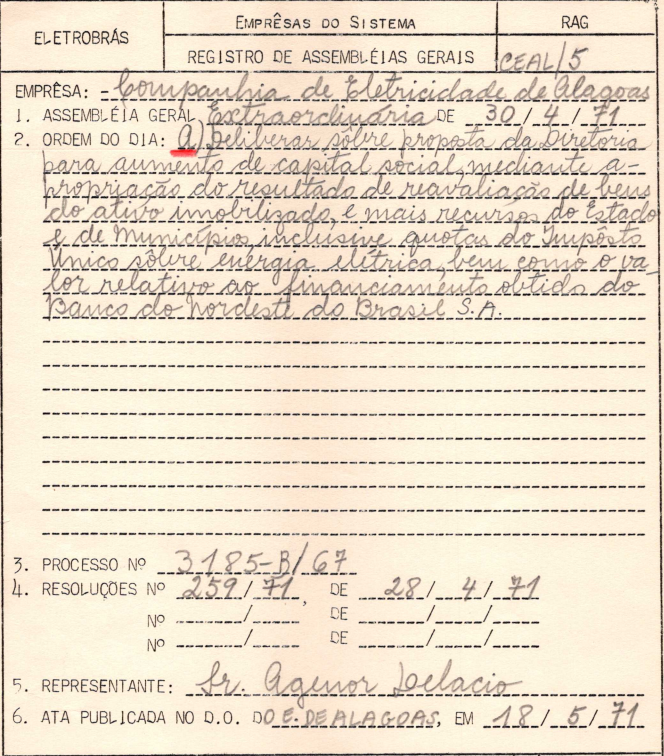 ELETROBRÁS
EMPRÊSAS DO SISTEMA
RAG
REGISTRO DE ASSEMBLÉIAS GERAIS
CEAL/5
EMPRÊSA: - Companhia de Eletricidade de Alagoas
1. ASSEMBLÉIA GERAL Extraordinária DE 30/4/71
2. ORDEM DO DIA: a) Deliberar sôbre proposta da Diretoria
para aumento de capital social, mediante a-
propriação do resultado de reavaliação de bens
do ativo imobilizado, e mais recursos do Estado
e de Municípios inclusive quotas do Impôsto
Único sôbre energia elétrica, bem como o va-
lor relativo ao financiamento obtido do
Banco do Nordeste do Brasil S.A.
3. PROCESSO Nº 3185-B/67
4. RESOLUÇÕES Nº 259/71, DE 28/4/71
Nº / DE / /
Nº / DE / /
5. REPRESENTANTE: Sr. Agenor Delacio
6. ATA PUBLICADA NO D.O. DO E. DE ALAGOAS, EM 18/5/71